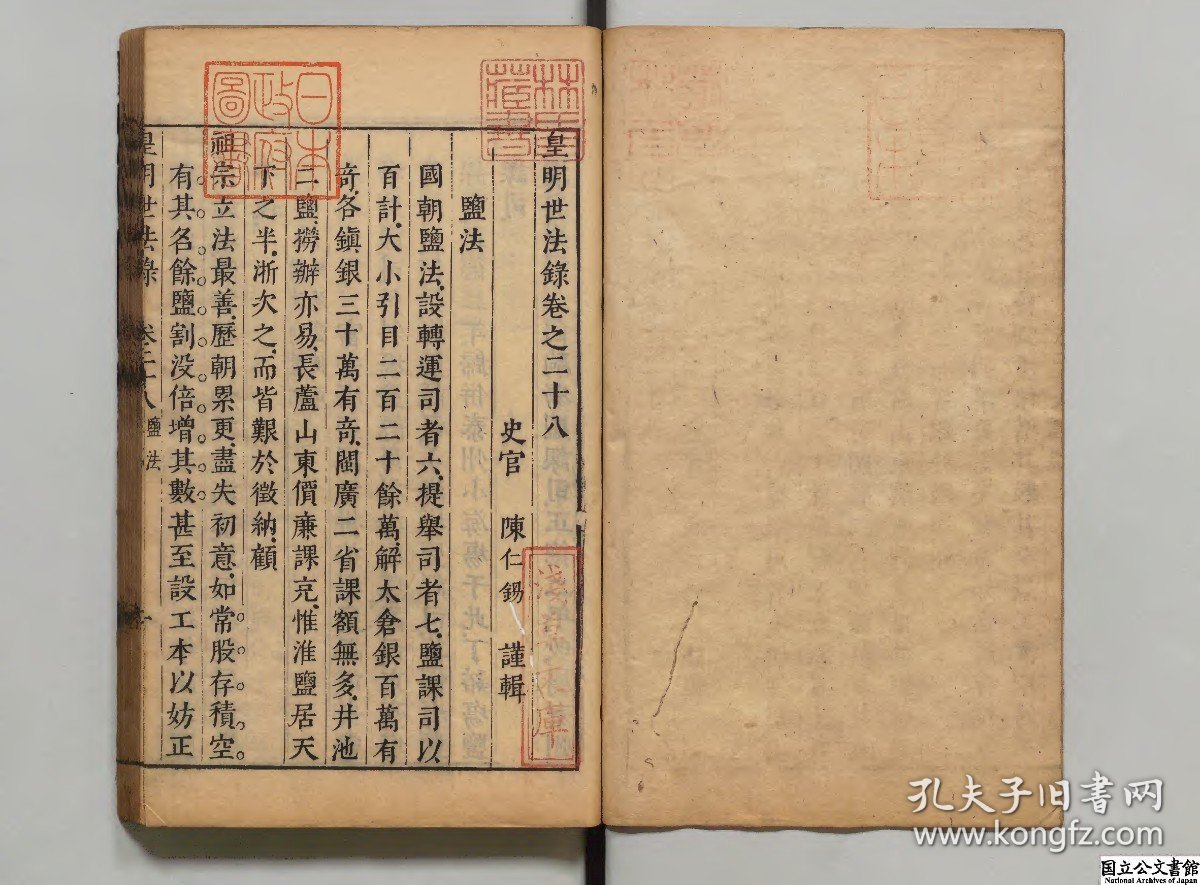 皇明世法錄卷之二十八
史官 陳仁錫 謹輯
鹽法
國朝鹽法、設轉運司者六、提舉司者七、鹽課司以
百計、大小引目二百二十餘萬、解太倉銀百萬有
奇、各鎭銀三十萬有奇、閩廣二省課額無多、井池
二鹽、撈辦亦易、長蘆山東價廉課充、惟淮鹽居天
下之半、浙次之、而皆艱於徵納、顧
祖宗立法最善、歷朝累更、盡失初意、如常股存積空
有其名餘鹽割没倍增其數甚至設工本以妨正
皇明世法錄 卷二十八 鹽法 一
日本政府圖書
林氏藏書
淺草文庫
孔夫子旧书网
www.kongfz.com
国立公文書館
National Archives of Japan